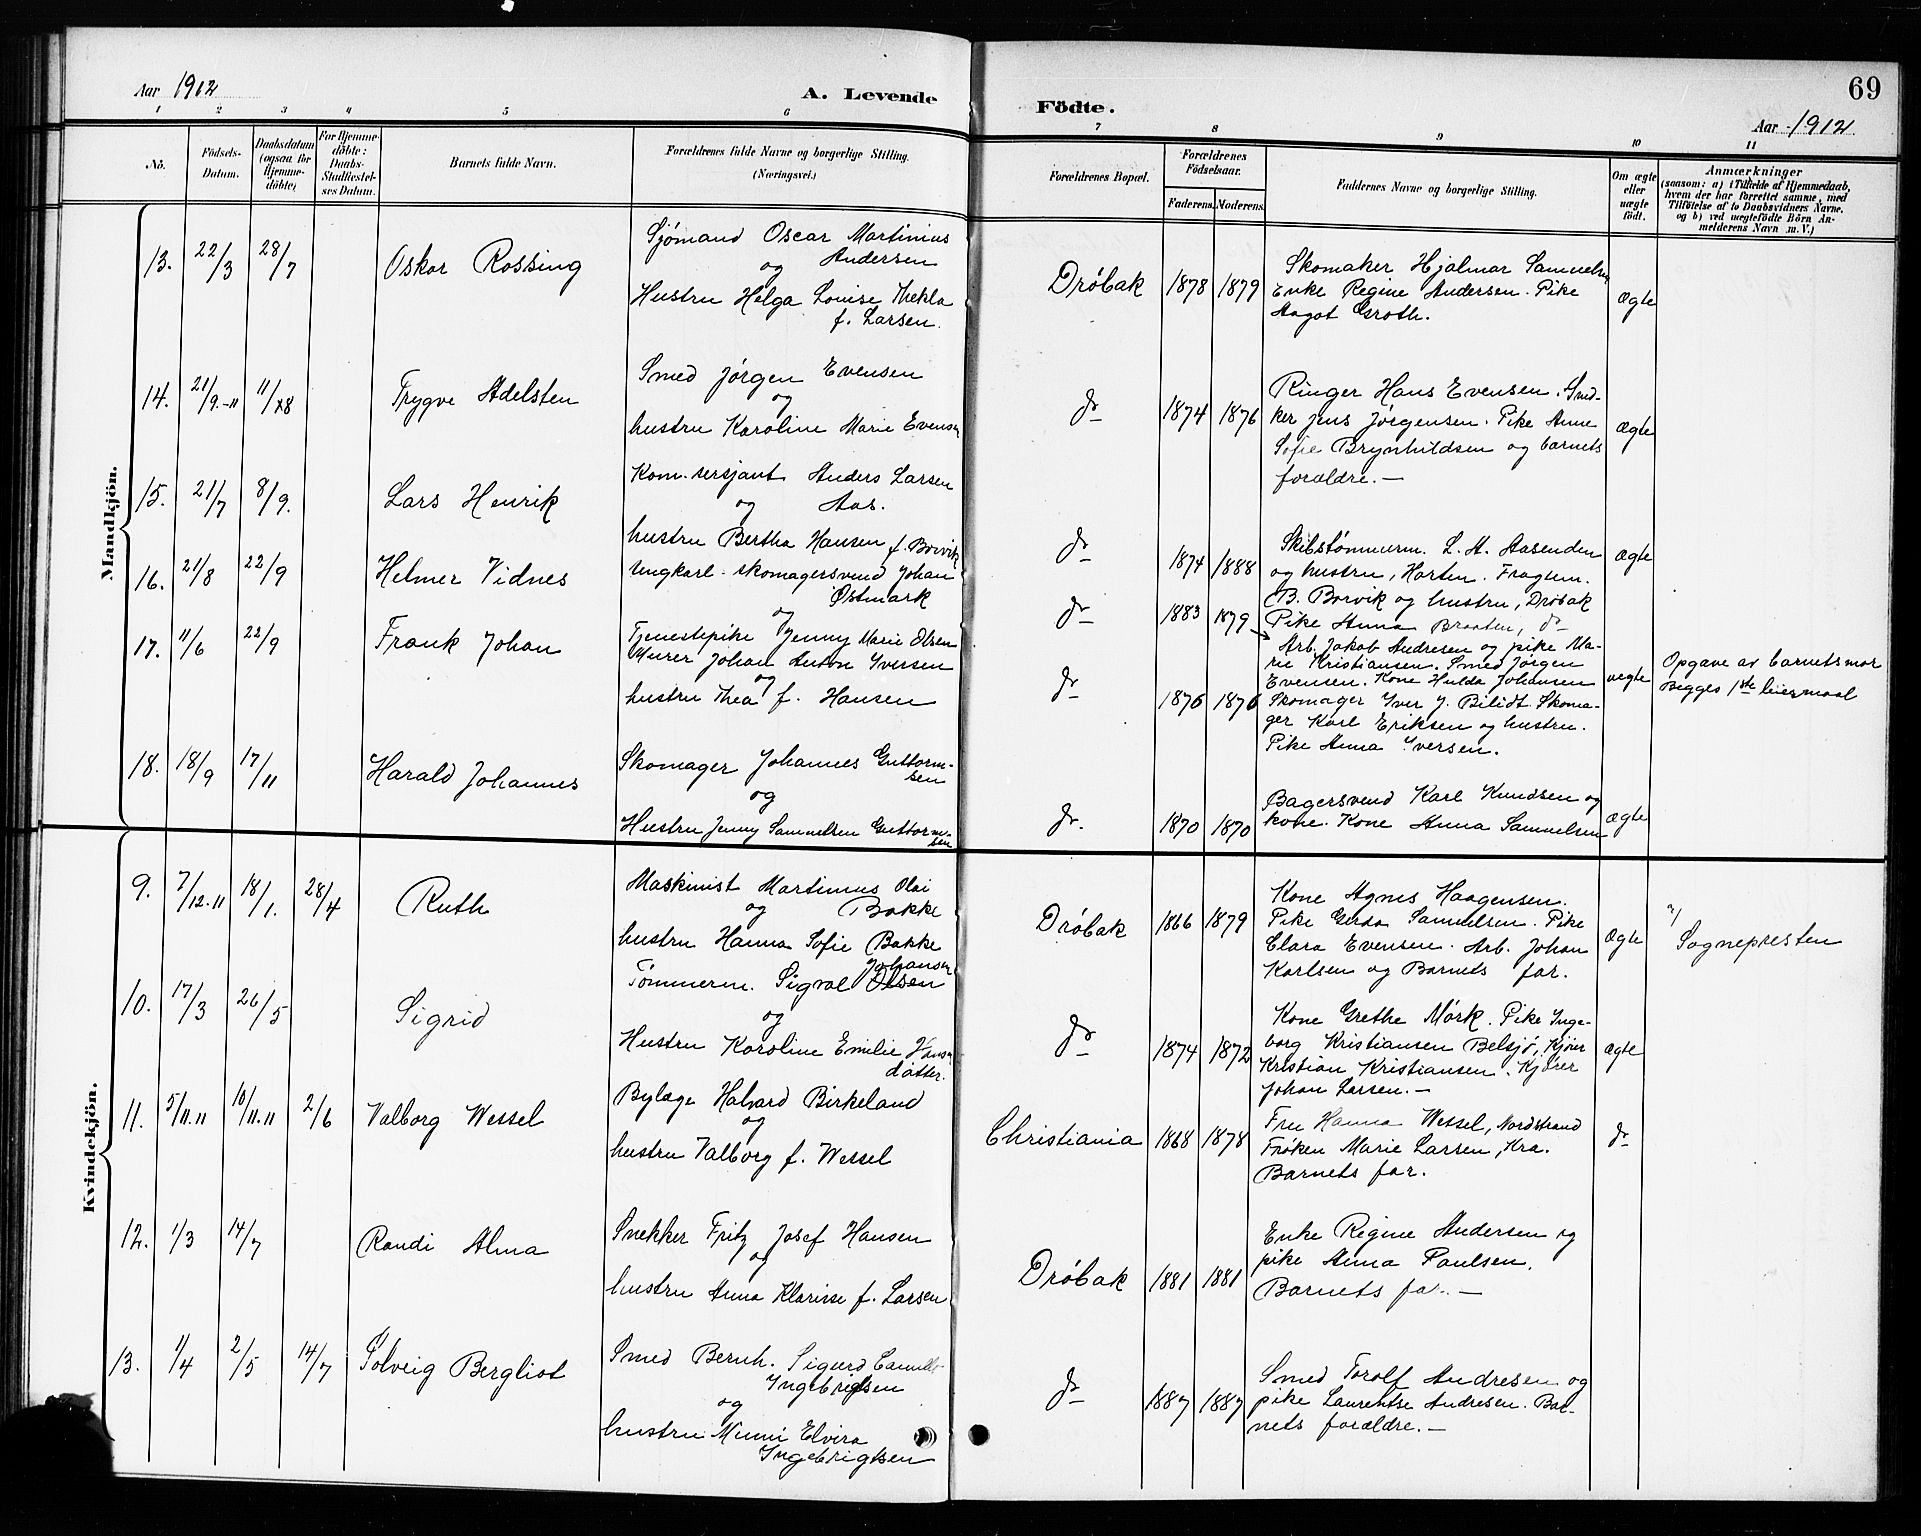 Aar 1912
A. Levende
Födte.
69
Aar 1912.
1 2 3 4 5 6 7 8 9 10 11
No.
Födsels-
Datum.
Daabsdatum
(ogsaa for
Hjemme-
döbte)
For Hjemme-
döbte:
Daabs-
Stadfæstel-
ses Datum.
Barnets fulde Navn.
Forældrenes fulde Navne og borgerlige Stilling.
(Næringsvei.)
Forældrenes Bopæl.
Forældrenes
Födselsaar.
Faderens. Moderens.
Faddernes Navne og borgerlige Stilling.
Om ægte
eller
uægte
födt.
Anmærkninger
(saasom: a) i Tilfælde af Hjemmedaab,
hvem der har forrettet samme, med
Tilföielse af to Daabsvidners Navne,
og b) ved uegtefödte Börn An-
melderens Navn m. V.)
Mandkjön.
13. 22/3 28/7 Oskar Rossing
Sjømand Oscar Martinius
Andersen
og
Hustru Helga Louise Thekla
f. Larsen.
Drøbak 1878 1879
Skomaker Hjalmar Samuelsen
Enke Regine Andersen. Pike
Aagot Groth.
Ægte
14. 21/9.-11 11/8 Trygve Adelsten
Smed Jørgen Evensen
og
hustru Karoline Marie Evensen
do 1874 1876
Ringer Hans Evensen. Sned-
ker Jens Jørgensen. Pike Anne
Sofie Brynhildsen og barnets
forældre.—
Ægte
15. 21/7 8/9. Lars Henrik
Kom.sersjant Anders Larsen
og Aas.
hustru Bertha Hansen f. Borvik
do 1874 1888
Skibstømmerm. L. H. Aasenden
og hustru, Horten. Fragtem.
B. Borvik og hustru, Drøbak
Ægte
16. 21/8 22/9 Helmer Vidnes
Ungkarl. skomagersvend Johan
Østmark
og
Tjenestepike Jenny Marie Olsen
do 1883 1879
Pike Anna Braaten, do
Arb. Jakob Andresen og pike Ma-
rie Kristiansen. Smed Jørgen
Evensen. Kone Hulda Johansen
uegte
Opgave av barnets mor
Begges 1ste leiermaal
17. 11/6 22/9 Frank Johan
Murer Johan Anton Iversen
og
hustru Thea f. Hansen
do 1876 1876
Skomager Iver J. Bilidt. Skoma-
ger Karl Eriksen og hustru.
Pike Anna Iversen.
18. 18/9 17/11 Harald Johannes
Skomager Johannes Guttorm-
sen
og
Hustru Jenny Samuelsen Guttorm-
sen
do. 1870 1870
Bagersvend Karl Knudsen og
kone. Kone Anna Samuelsen
Ægte
Kvindekjön.
9. 7/12-11 18/1. 28/4 Ruth
Maskinist Martinius Olai
og Bakke
hustru Hanna Sofie Bakke
Johansen
Drøbak 1866 1879
Kone Agnes Haagensen.
Pike Gerda Samuelsen. Pike
Clara Evensen. Arb. Johan
Karlsen og Barnets far.
Ægte
a/
Sognepresten
10. 17/3 26/5 Sigrid
Tømmerm. Sigval Olsen
og
Hustru Karoline Emilie
datter.
do 1874 1872
Kone Grethe Mørk. Pike Inge-
borg Kristiansen Belsjø, Kjører
Kristian Kristiansen. Kjører
Johan Larsen.—
Ægte
11. 5/11.11 10/11.11 2/6 Valborg Wessel
Bylæge Halvard Birkeland
og
hustru Valborg f. Wessel
Christiania 1868 1878
Fru Hanna Wessel, Nordstrand
Frøken Marie Larsen, Kra.
Barnets far.
do
12. 1/3 14/7 Randi Alma
Snekker Fritz Josef Hansen
og
hustru Anna Klarisse f. Larsen
Drøbak 1881 1881
Enke Regine Andersen og
pike Anna Paulsen.
Barnets far.—
13. 1/4 2/5 14/7 Solveig Bergliot
Smed Bernh. Sigurd
Ingebrigtsen
og
hustru Minni Elvira
Ingebrigtsen
do 1887 1887
Smed Torolf Andresen og
pike Laurentse Andresen. Bar-
nets forældre.—